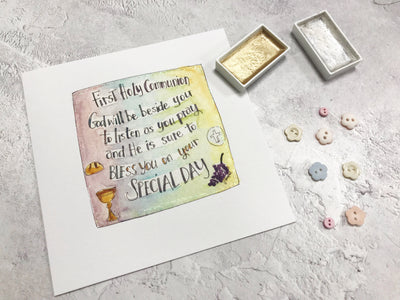 First Holy Communion
God will be beside you
to listen as you pray
and He is sure to
BLESS you on your
SPECIAL DAY